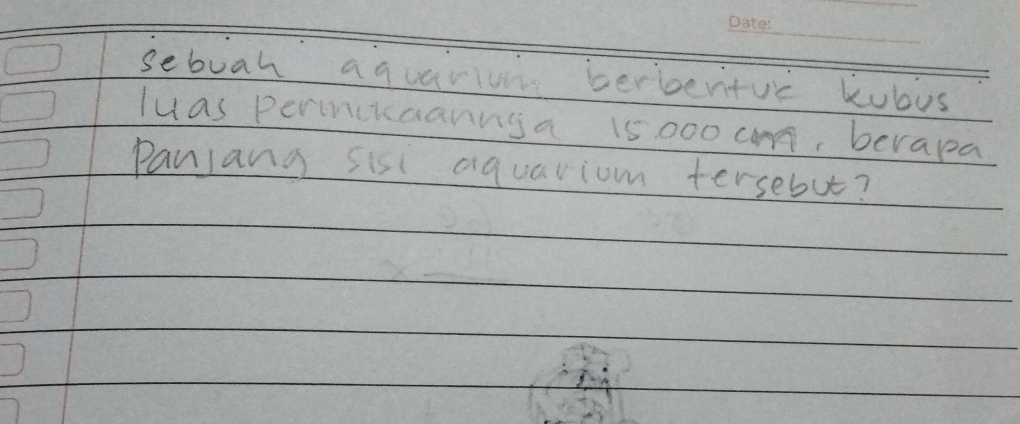 Date:
sebuah aquarium berbentuk kubus
luas permukaannya 15.000 cm, berapa
Panjang sisi aquarium tersebut?